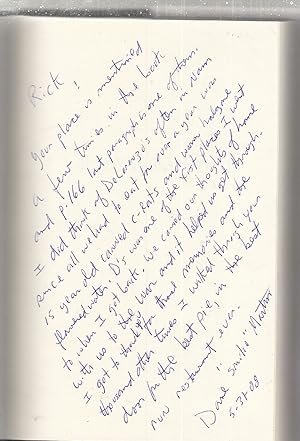 Rick!
Your place is mentioned
a few times in the book
and p. 166 last paragraph is one of them.
I did think of DeLorenzo's often in Nam
since all we had to eat for over a year was
15 year old canned c-rats and warm halazone
flavored water. D's was one of the first places I went
to when I got back. We carried our thoughts of home
with us to the war and it helped us get through.
I got to thank you for those memories and the
thousand other times I walked through your
door for the best pie, in the best
run restaurant ever.
Dave "Smitto" Morton
5-31-08